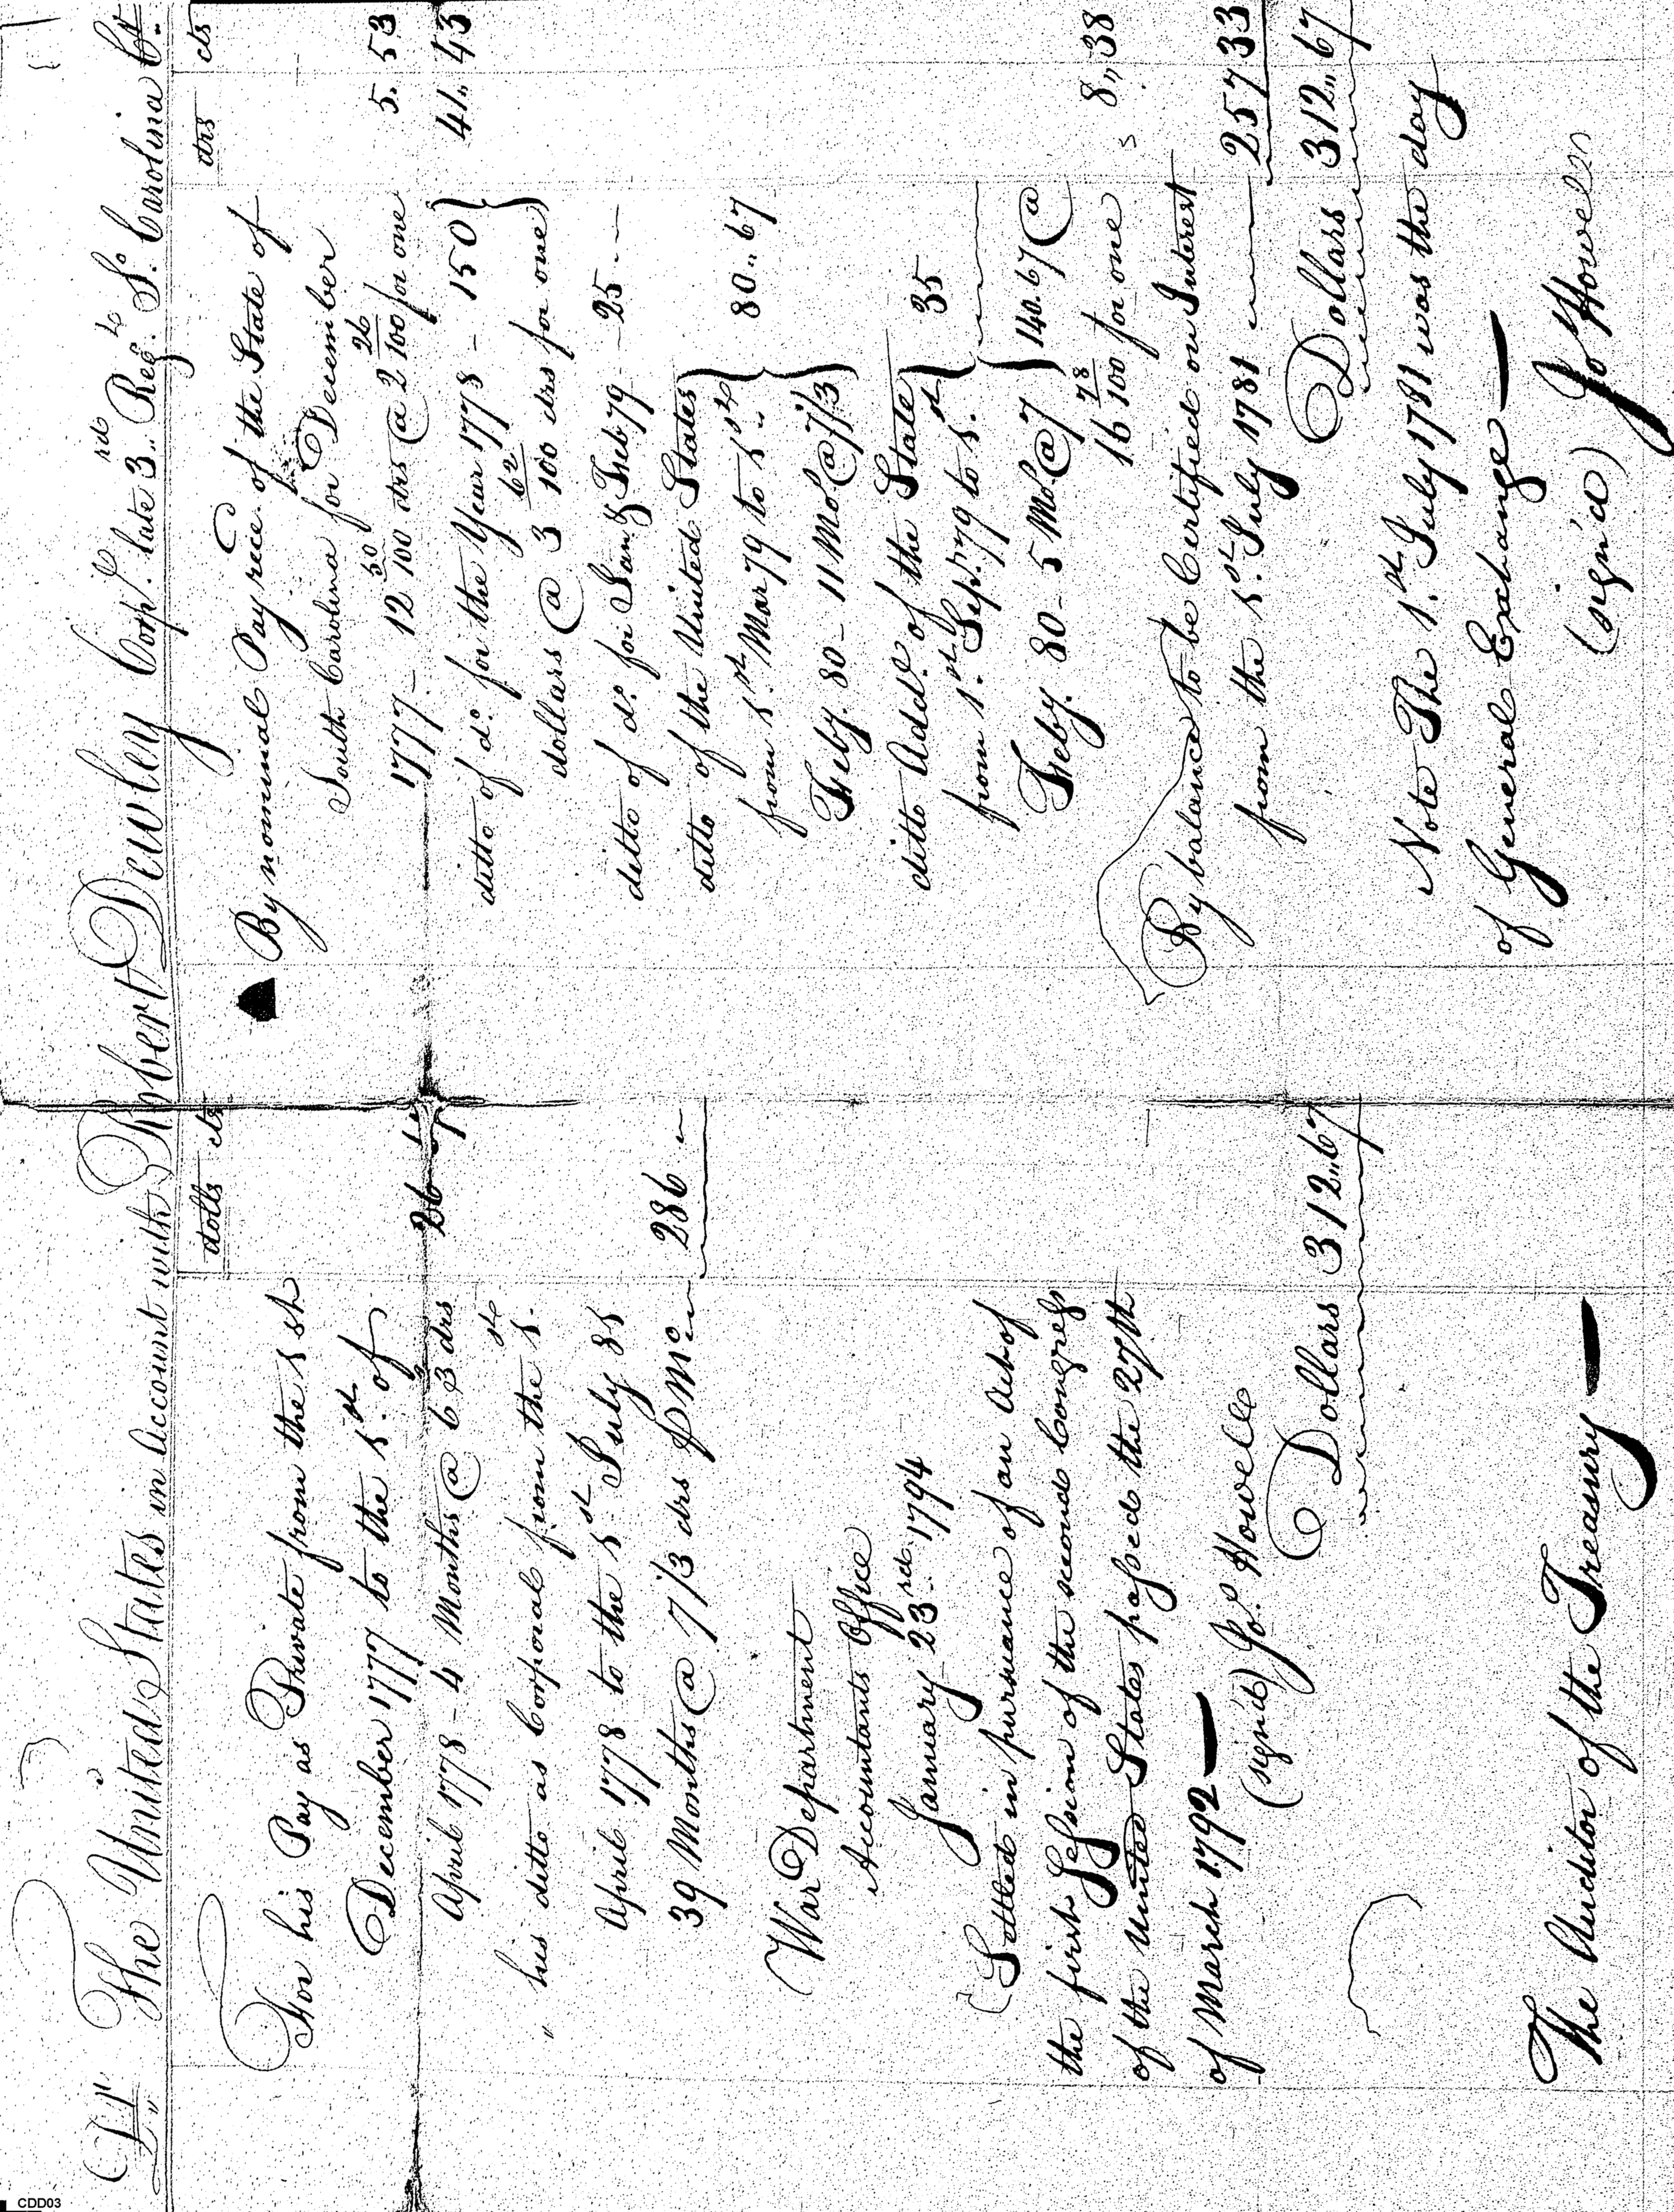 Dr The United States in Account with Robert Dewley Corpl. late 3rd Regt. So. Carolina Cr.
dolls cts
For his Pay as Private from the 1st
December 1777 to the 1st. of
April 1778 - 4 Months @ 6 2/3 drs 26
" his ditto as Corporal from the 1st
April 1778 to the 1st July 81
39 Months @ 7 1/3 drs pr Mo 286
War Department
Accountants Office
January 23rd. 1794
Settled in pursuance of an Act of
the first Session of the second Congress
of the United States passed the 27th
of March 1792
(signd) Jo. Howell
Dollars 312.67
The Auditor of the Treasury
drs cts
By nominal Pay rece. of the State of
South Carolina for December
1777 - 12 50/100 drs @ 2 26/100 for one 5. 53
ditto of do. for the Year 1778 - 150
dollars @ 3 62/100 drs for one 41,, 43
ditto of do. for Jan & Feb 79 - 25
ditto of the United States
from 1st Mar 79 to 1st
Feby. 80 - 11 Mos @ 7 1/3 80.. 67
ditto Addl. of the State
from 1st. Sep. 79 to 1st. 35
Feby. 80 - 5 Mo. @ 7 140.67 @
16 78/100 for one 8,,38
By balance to be Certified on Interest
from the 1st July 1781 257 33
Dollars 312.. 67
Note The 1st. July 1781 was the day
of General Exchange
(sign'd) Jo Howell
CDD03